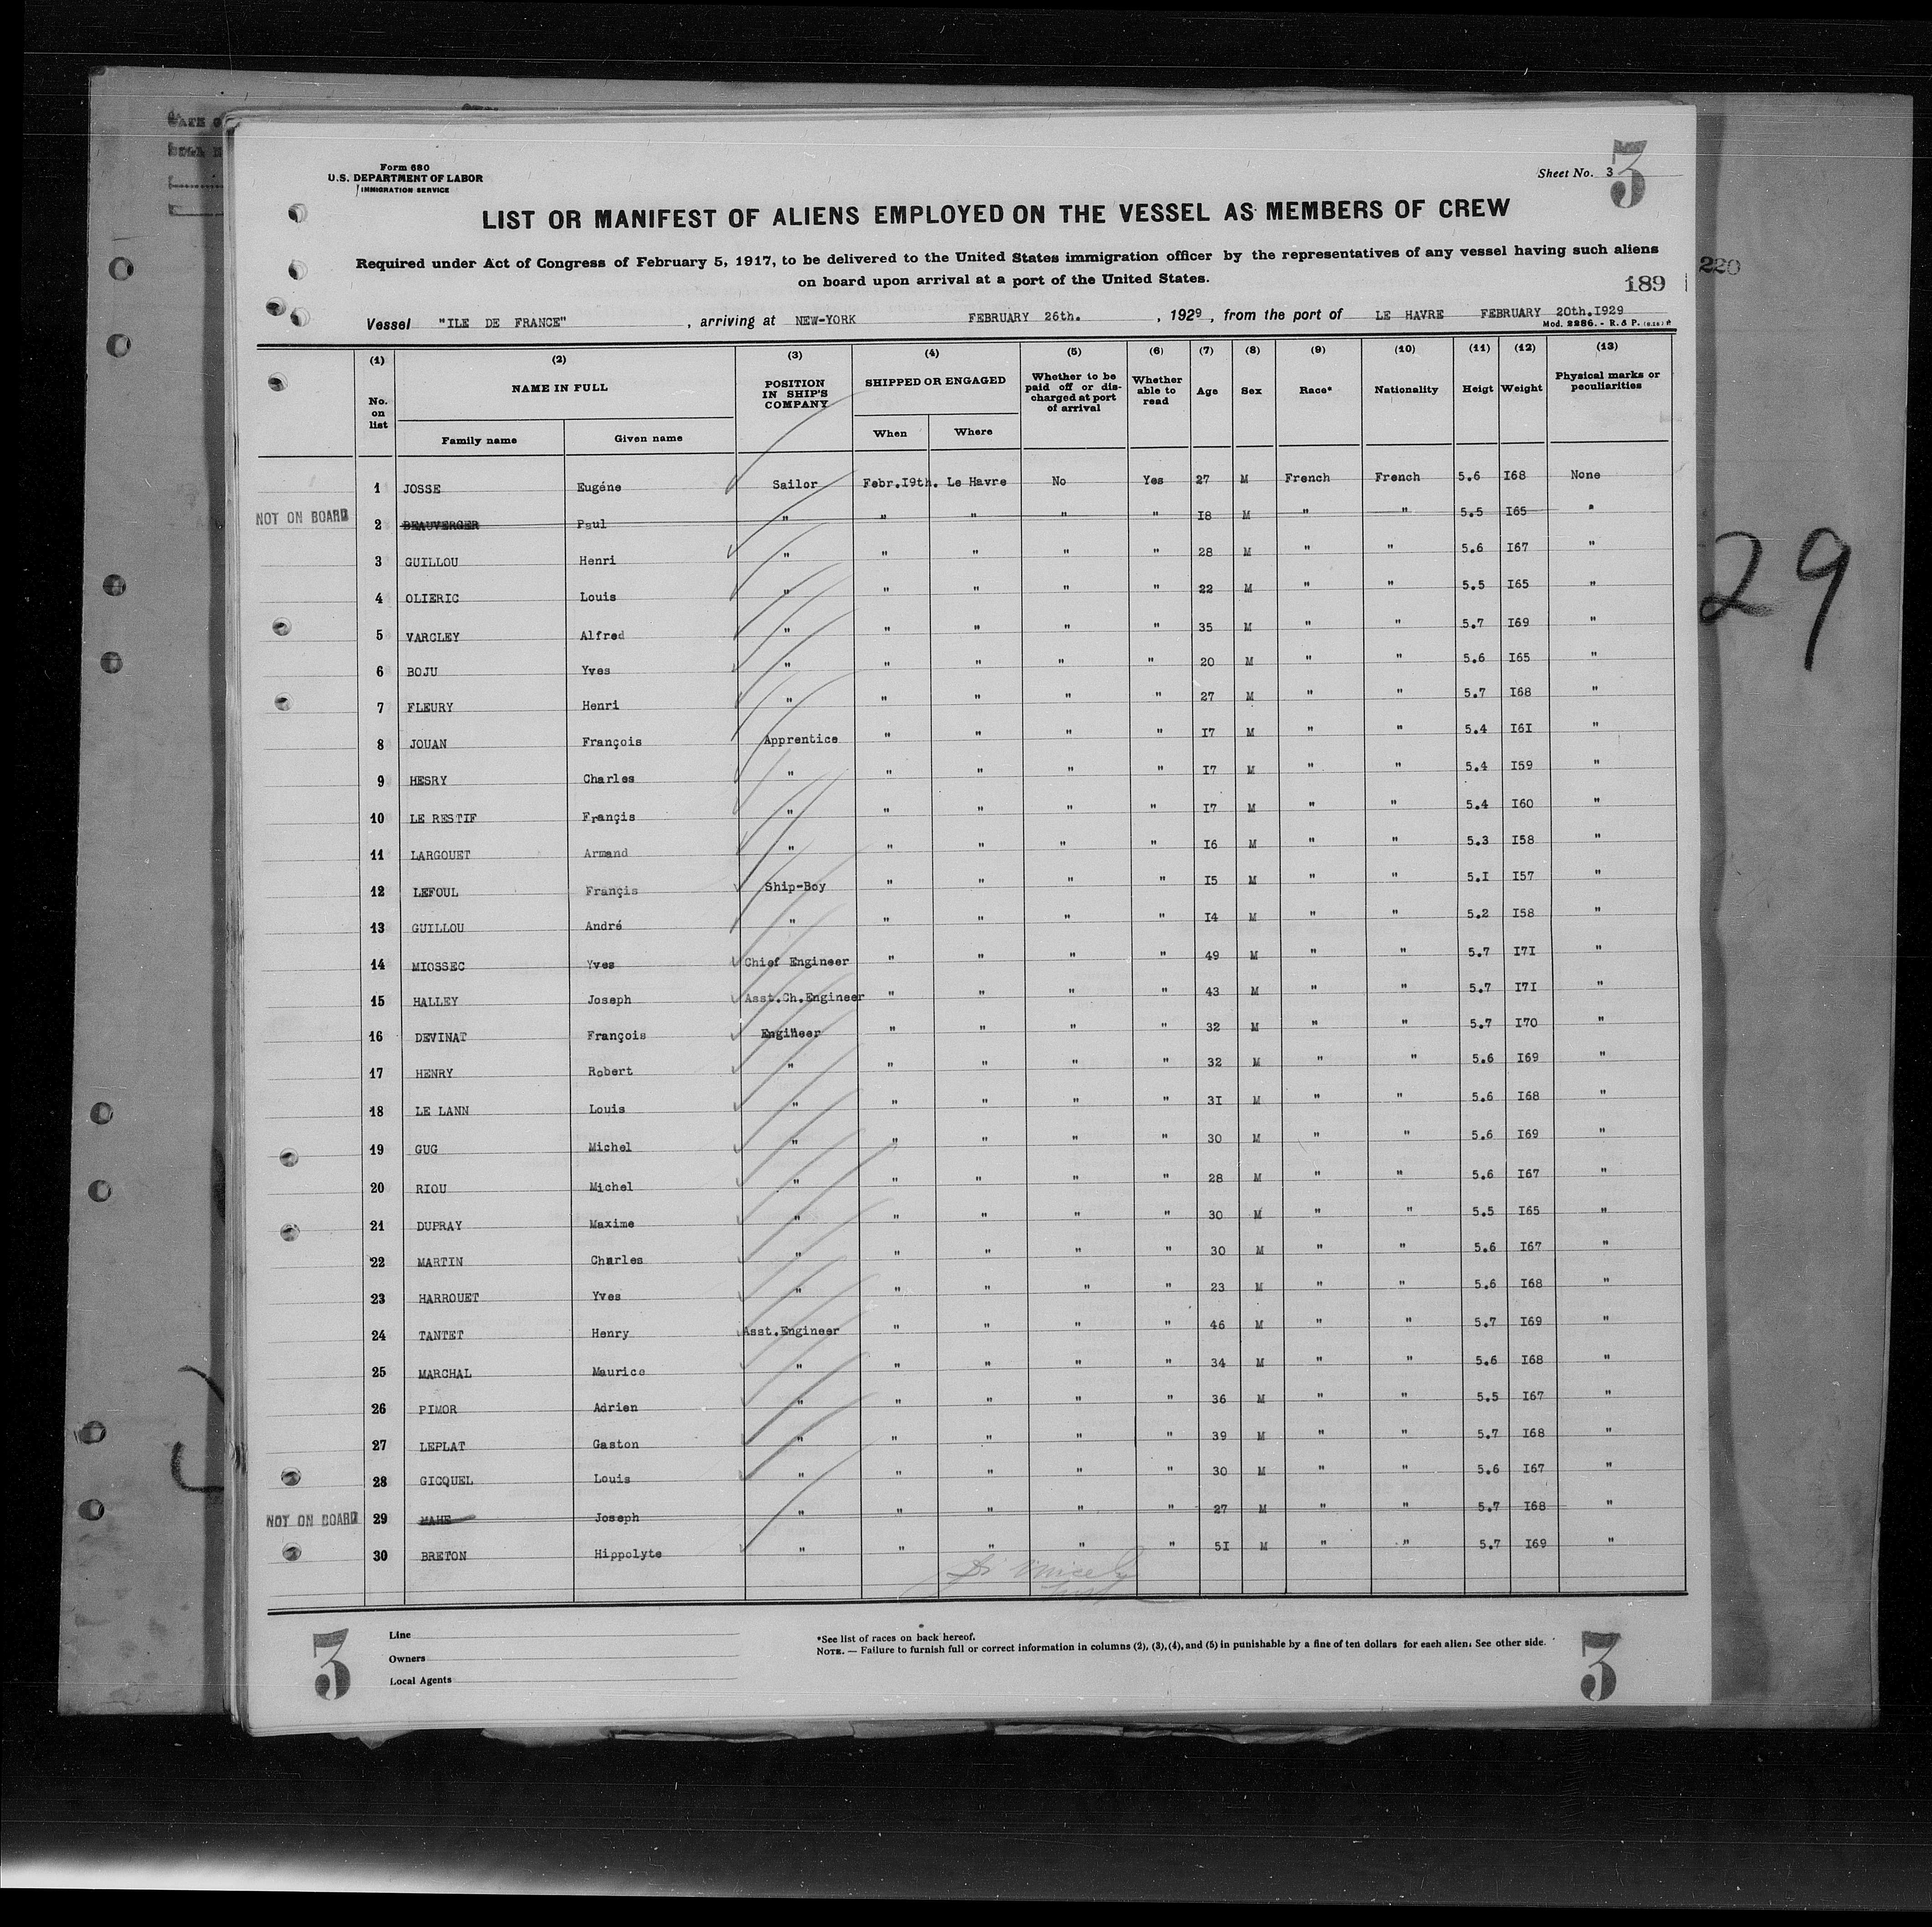 Form 680
U.S. DEPARTMENT OF LABOR
IMMIGRATION SERVICE
Sheet No. 3
3
LIST OR MANIFEST OF ALIENS EMPLOYED ON THE VESSEL AS MEMBERS OF CREW
Required under Act of Congress of February 5, 1917, to be delivered to the United States immigration officer by the representatives of any vessel having such aliens
on board upon arrival at a port of the United States.
189
220
Vessel "ILE DE FRANCE", arriving at NEW-YORK FEBRUARY 26th., 1929, from the port of LE HAVRE FEBRUARY 20th.I929
Mod. 2286. - R. & P.
(1) (2) (3) (4) (5) (6) (7) (8) (9) (10) (11) (12) (13)
No. on list NAME IN FULL POSITION IN SHIP'S COMPANY SHIPPED OR ENGAGED Whether to be paid off or discharged at port of arrival Whether able to read Age Sex Race* Nationality Heigt Weight Physical marks or peculiarities
Family name Given name When Where
1 JOSSE Eugéne Sailor Febr.I9th. Le Havre No Yes 27 M French French 5.6 I68 None
NOT ON BOARD 2 BEAUVERGER Paul " " " " " I8 M " " 5.5 I65 "
3 GUILLOU Henri " " " " " 28 M " " 5.6 I67 "
4 OLIERIC Louis " " " " " 22 M " " 5.5 I65 "
5 VARCLEY Alfred " " " " " 35 M " " 5.7 I69 "
6 BOJU Yves " " " " " 20 M " " 5.6 I65 "
7 FLEURY Henri " " " " " 27 M " " 5.7 I68 "
8 JOUAN François Apprentice " " " " I7 M " " 5.4 I6I "
9 HESRY Charles " " " " " I7 M " " 5.4 I59 "
10 LE RESTIF Françis " " " " " I7 M " " 5.4 I60 "
11 LARGOUET Armand " " " " " I6 M " " 5.3 I58 "
12 LEFOUL Françis Ship-Boy " " " " I5 M " " 5.I I57 "
13 GUILLOU André " " " " " I4 M " " 5.2 I58 "
14 MIOSSEC Yves Chief Engineer " " " " 49 M " " 5.7 I7I "
15 HALLEY Joseph Asst.Ch.Engineer " " " " 43 M " " 5.7 I7I "
16 DEVINAT François Engineer " " " " 32 M " " 5.7 I70 "
17 HENRY Robert " " " " " 32 M " " 5.6 I69 "
18 LE LANN Louis " " " " " 3I M " " 5.6 I68 "
19 GUG Michel " " " " " 30 M " " 5.6 I69 "
20 RIOU Michel " " " " " 28 M " " 5.6 I67 "
21 DUPRAY Maxime " " " " " 30 M " " 5.5 I65 "
22 MARTIN Charles " " " " " 30 M " " 5.6 I67 "
23 HARROUET Yves " " " " " 23 M " " 5.6 I68 "
24 TANTET Henry Asst.Engineer " " " " 46 M " " 5.7 I69 "
25 MARCHAL Maurice " " " " " 34 M " " 5.6 I68 "
26 PIMOR Adrien " " " " " 36 M " " 5.5 I67 "
27 LEPLAT Gaston " " " " " 39 M " " 5.7 I68 "
28 GICQUEL Louis " " " " " 30 M " " 5.6 I67 "
NOT ON BOARD 29 MAHE Joseph " " " " " 27 M " " 5.7 I68 "
30 BRETON Hippolyte " " " " " 5I M " " 5.7 I69 "
29
Line
Owners
Local Agents
*See list of races on back hereof.
NOTE. — Failure to furnish full or correct information in columns (2), (3), (4), and (5) in punishable by a fine of ten dollars for each alien. See other side.
3
3